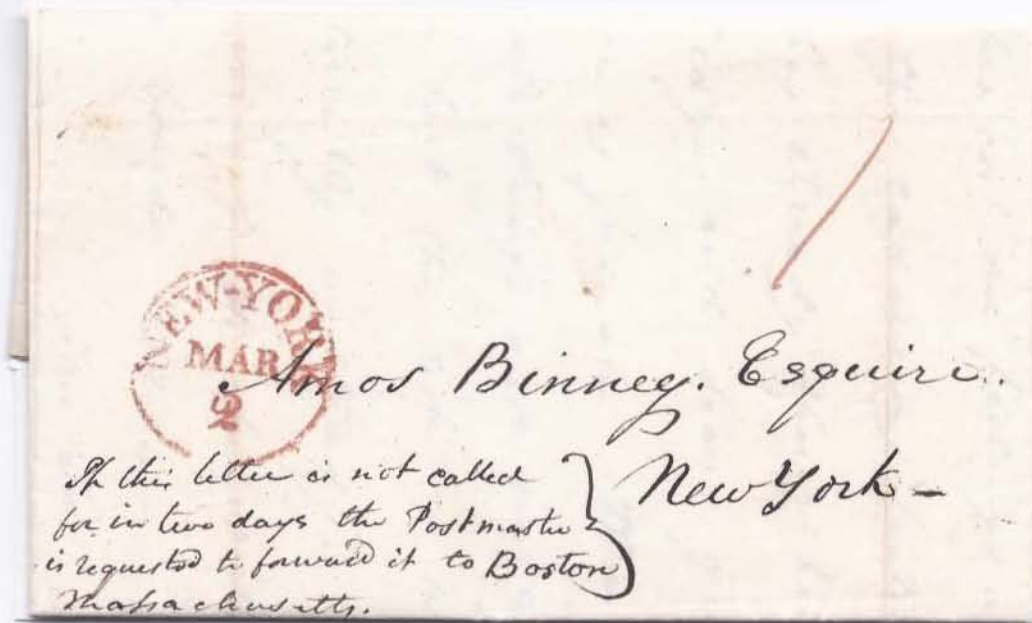 NEW-YORK
MAR
2
Amos Binney. Esquire.
New York –
If this letter is not called
for in two days the Postmaster
is requested to forward it to Boston
Massachusetts.